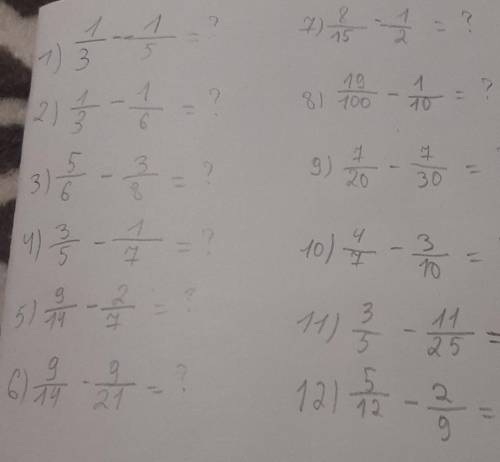 1) 1/3 - 1/5 = ?
2) 1/3 - 1/6 = ?
3) 5/6 - 3/8 = ?
4) 3/5 - 1/7 = ?
5) 9/14 - 2/7 = ?
6) 9/14 - 9/21 = ?
7) 8/15 - 1/2 = ?
8) 19/100 - 1/10 = ?
9) 7/20 - 7/30 = ?
10) 4/7 - 3/10 =
11) 3/5 - 11/25 =
12) 5/12 - 2/9 =